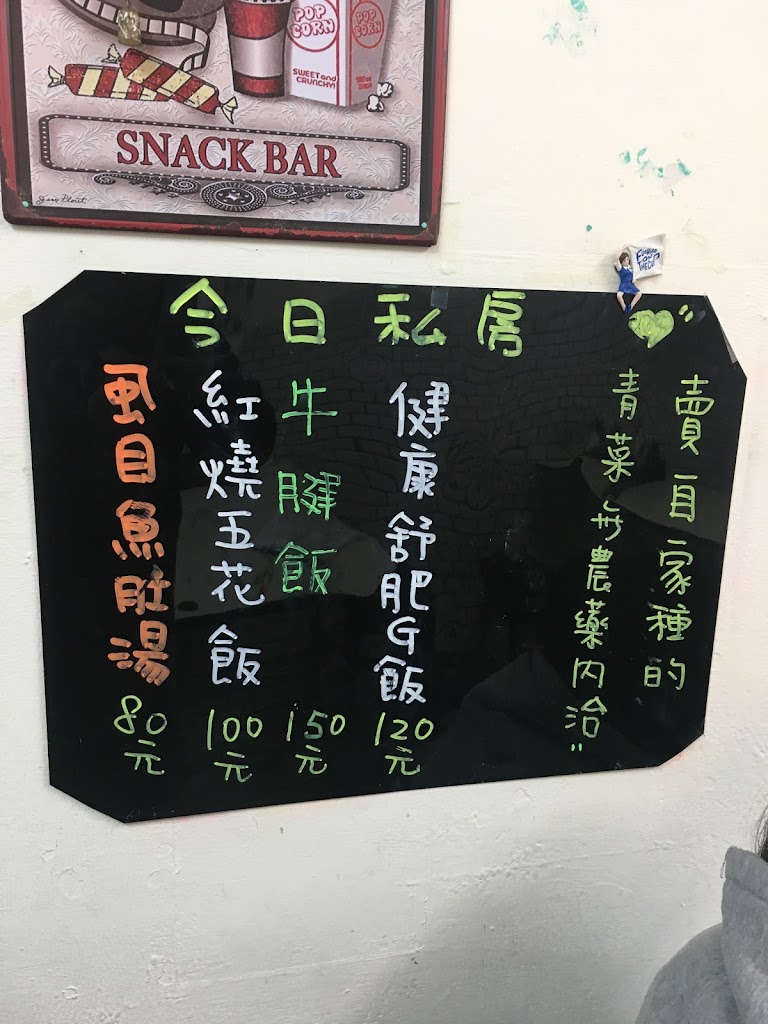 POP CORN
POP CORN
SWEET and CRUNCHY!
SNACK BAR
今日私房
賣自家種的
青菜
農藥內洽
健康舒肥G飯 120元
牛腱飯 150元
紅燒五花飯 100元
虱目魚肚湯 80元